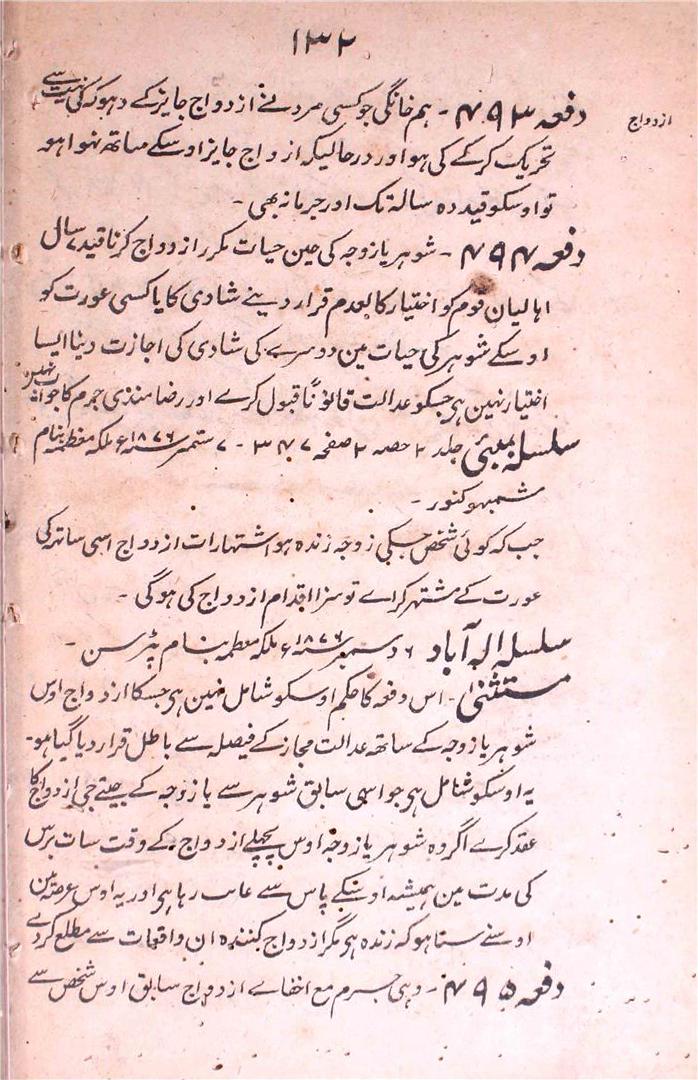 ۱۳۲
ازدواج
دفعہ ۴۹۳ - ہم خانگی جو کسی مرد نے ازدواج جایز کے دہوکہ کی نیت سے
تحریک کر کے کی ہو اور درحالیکہ ازدواج جایز اوسکے ساتھ نہوا ہو
تو اوسکو قید دہ سالہ تک اور جرمانہ بھی -
دفعہ ۴۹۴ - شوہر یا زوجہ کی حین حیات مکرر ازدواج کرنا قید ۷ سال
اہالیان قوم کو اختیار کالعدم قرار دینے شادی کا یا کسی عورت کو
اوسکے شوہر کی حیات مین دوسرے کی شادی کی اجازت دینا ایسا
اختیار نہین ہی جسکو عدالت قانوناً قبول کرے اور رضامندی جرم کا جواب نہین
سلسلہ بمبئی جلد ۲ حصہ ۲ صفحہ ۳۴۷ - ۷ ستمبر سنہ ۱۸۷۶ع ملکہ معظمہ بنام
شمبہو کنور -
جب کہ کوئی شخص جسکی زوجہ زندہ ہو اشتہارات ازدواج اسی ساتہ کی
عورت کے مشتہر کراے تو سزا اقدام ازدواج کی ہوگی -
سلسلہ الہ آباد ۶ دسمبر سنہ ۱۸۷۶ع ملکہ معظمہ بنام پٹرسن -
مستثنیٰ - اس دفعہ کا حکم اوسکو شامل نہین ہی جسکا ازدواج اوس
شوہر یا زوجہ کے ساتھ عدالت مجاز کے فیصلہ سے باطل قرار دیا گیا ہو -
یہ اوسکو شامل ہی جو اسی سابق شوہر سے یا زوجہ کے جیتے جی ازدواج کا
عقد کرے اگر وہ شوہر یا زوجہ اوس پچھلے ازدواج کے وقت سات برس
کی مدت مین ہمیشہ اوسکے پاس سے غائب رہا ہی اور یہ اوس عرصہ مین
اوسنے سنا ہو کہ زندہ ہی مگر ازدواج کنندہ ان واقعات سے مطلع کردے
دفعہ ۴۹۵ - وہی جرم مع اخفاے ازدواج سابق اوس شخص سے